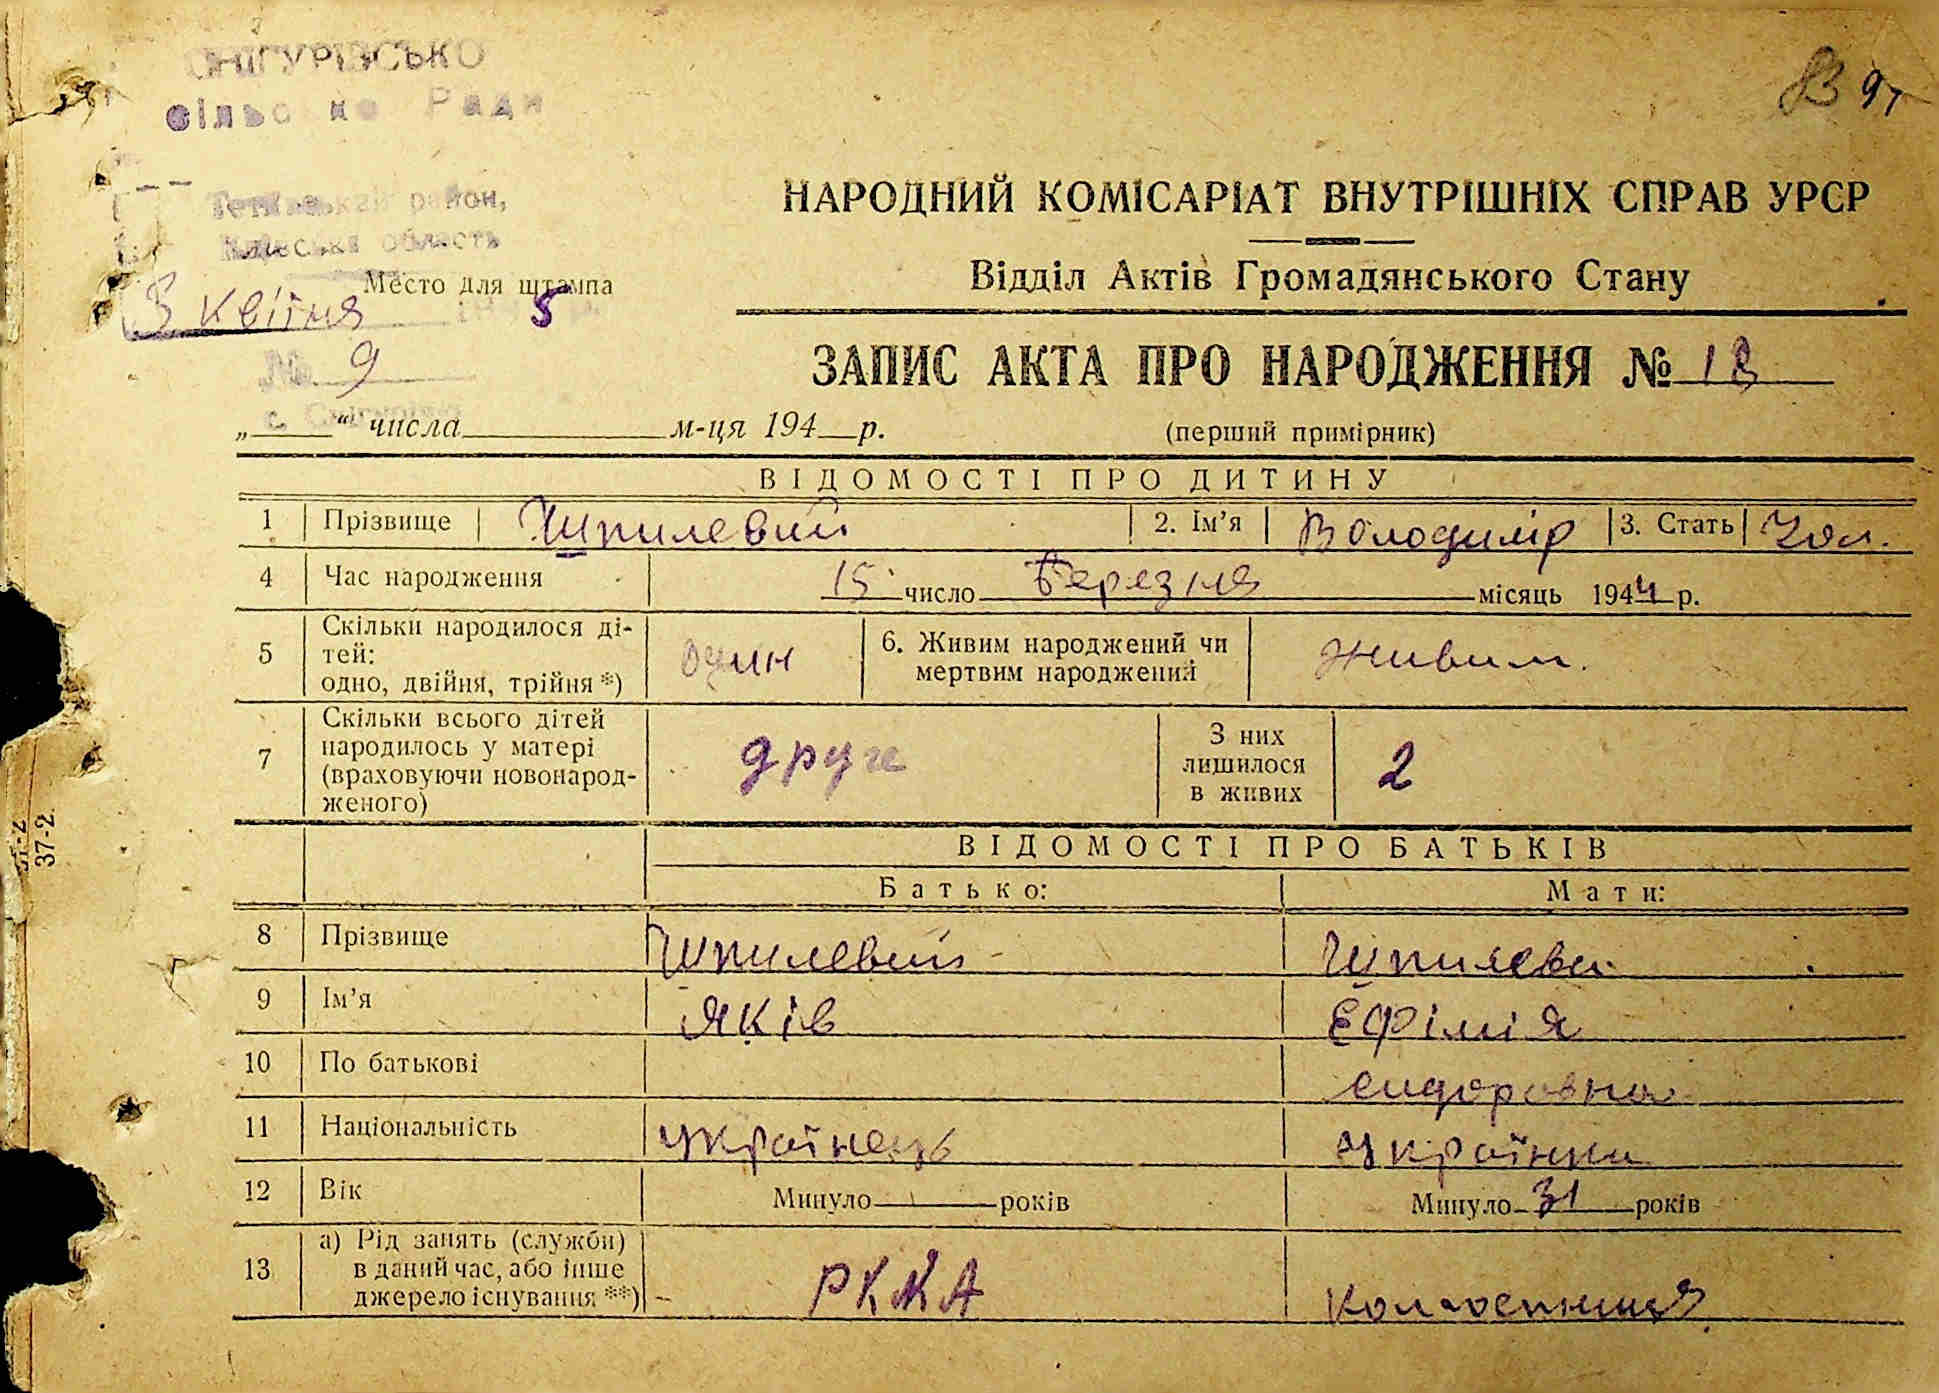 СНІГУРІВСЬКО
сільсько Ради
83 97
Тетіївський район,
Київська область
Место для штампа
3 квітня 5
№ 9
НАРОДНИЙ КОМІСАРІАТ ВНУТРІШНІХ СПРАВ УРСР
Відділ Актів Громадянського Стану
ЗАПИС АКТА ПРО НАРОДЖЕННЯ № 18
„ “ числа м-ця 194 р.
(перший примірник)
ВІДОМОСТІ ПРО ДИТИНУ
1 Прізвище Шпилевий 2. Ім’я Володимір 3. Стать Чол.
4 Час народження 15 число Березня місяць 1944 р.
5 Скільки народилося ді-
тей:
одно, двійня, трійня *) один 6. Живим народжений чи
мертвим народжений живим.
7 Скільки всього дітей
народилось у матері
(враховуючи новонарод-
женого) друге З них
лишилося
в живих 2
ВІДОМОСТІ ПРО БАТЬКІВ
Батько: Мати:
8 Прізвище Шпилевий Шпилева
9 Ім’я Яків Єфімія
10 По батькові Сидоровна
11 Національність українець українка
12 Вік Минуло років Минуло 31 років
13 а) Рід занять (служби)
в даний час, або інше
джерело існування **) РККА Колгоспниця
37-2.